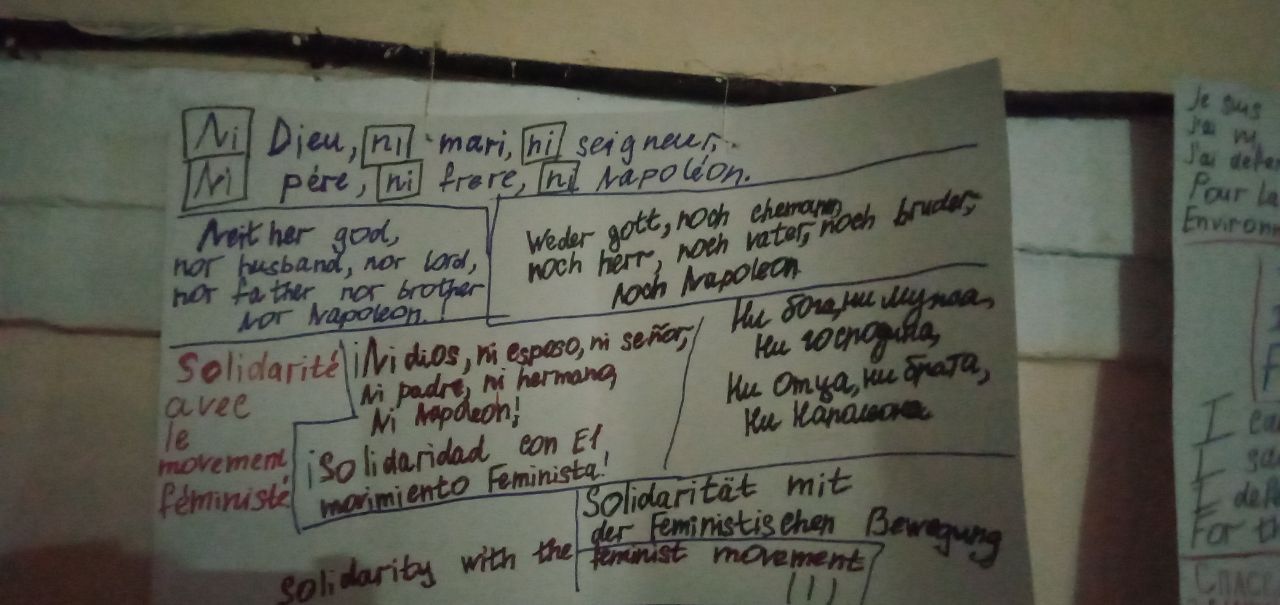 Ni Dieu, ni mari, ni seigneur,
Ni pére, ni frere, ni Napoléon.
Neither god,
nor husband, nor lord,
nor father nor brother
Nor Napoleon.
Weder gott, noch ehemann,
noch herr, noch vater, noch bruder,
noch Napoleon
Solidarité
avec
le
movement
féministé
¡Ni dios, ni esposo, ni señor,
Ni padre, ni hermano,
Ni Napoleon!
¡Solidaridad con El
movimiento Feminista!
Ни бога, ни мужа,
Ни господина,
Ни отца, ни брата,
Ни Наполеона
Solidarität mit
der Feministischen Bewegung
Solidarity with the feminist movement
(1)
Je suis
J'ai vu
J'ai
Pour la
I
I
I
For